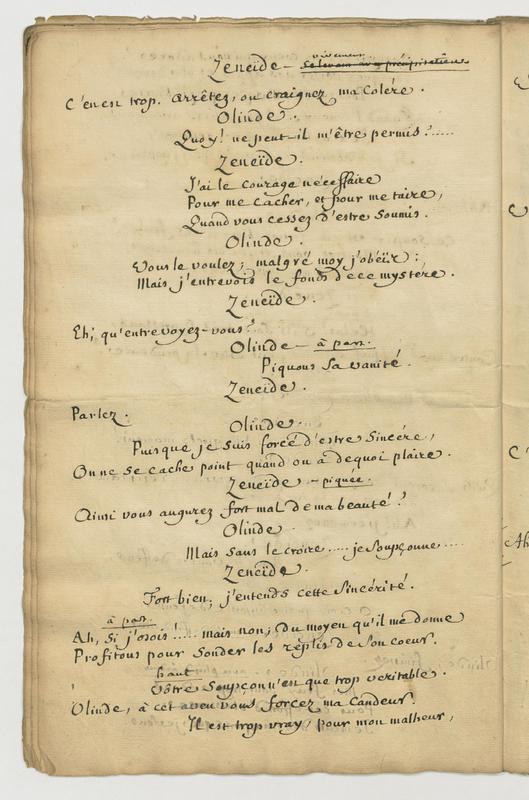 Zeneïde — vivement.
C'en est trop. arrêtez, ou craignez ma Colére.
Olinde.
Quoy! ne peut-il m'être permis?.....
Zeneïde.
J'ai le Courage nécessaire
Pour me cacher, et pour me taire,
Quand vous cessez d'estre Soumis.
Olinde.
Vous le voulez; malgré moy j'obéïr:
Mais j'entrevois le fonds de ce mystère.
Zeneïde.
Eh; qu'entrevoyez-vous?
Olinde — à part.
Piquons Sa vanité.
Zeneïde.
Parlez.
Olinde.
Puisque je Suis forcé d'estre Sincére,
On ne se cache point quand on a dequoi plaire.
Zeneïde — piquée.
Ainsi vous augurez fort mal de ma beauté?
Olinde.
Mais Sans le croire..... je Soupçonne....
Zeneïde.
Fort bien; j'entends cette Sincérité.
à part.
Ah, Si j'osois!..... mais non; Du moyen qu'il me donne
Profitons pour Sonder les replis de Son coeur.
haut
Vôtre Soupçon n'en que trop veritable.
Olinde, à cet aveu vous forcez ma Candeur.
Il est trop vray, pour mon malheur,